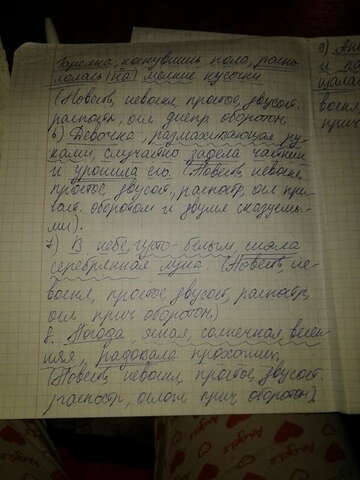 Тарелка, коснувшись пола, раско
лолась (на) мелкие кусочки
(Повеств, невоскл, простое, двусост.
распостр, осл деепр оборотом.
6) Девочка, размахивающая ру-
ками, случайно задела чайник
и уронила его. (Повеств, невоскл,
простое, двусост, распостр, осл при-
част. оборотом и двумя сказуемы-
ми).
7) В небе, изчо-белым, сияла
серебрянная луна (Повеств, не-
воскл, простое, двусост, распостр,
осл прич оборотом.)
8. Погода, ясная, солнечная, весен-
няя, радовала прохожих.
(Повеств, невоскл, простое, двусост.
распостр, ослож прич оборотом)
9) Ан
и по
щала
воскл
прич